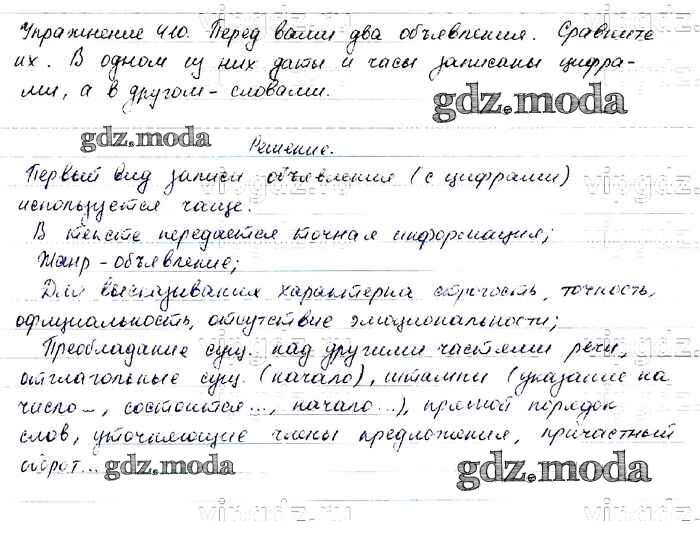 Упражнение 410. Перед вами два объявления. Сравните
их. В одном из них даты и часы записаны цифра-
ми, а в другом - словами.
gdz.moda
gdz.moda
Решение.
Первый вид записи объявления (с цифрами)
используется чаще.
В тексте передается точная информация;
Жанр - объявление;
Для высказывания характерна строгость, точность,
официальность, отсутствие эмоциональности;
Преобладание сущ. над другими частями речи,
отглагольные сущ. (начало), штампы (указание на
число..., состоится..., начало...), прямой порядок
слов, уточняющие члены предложения, причастный
оборот...
gdz.moda
gdz.moda